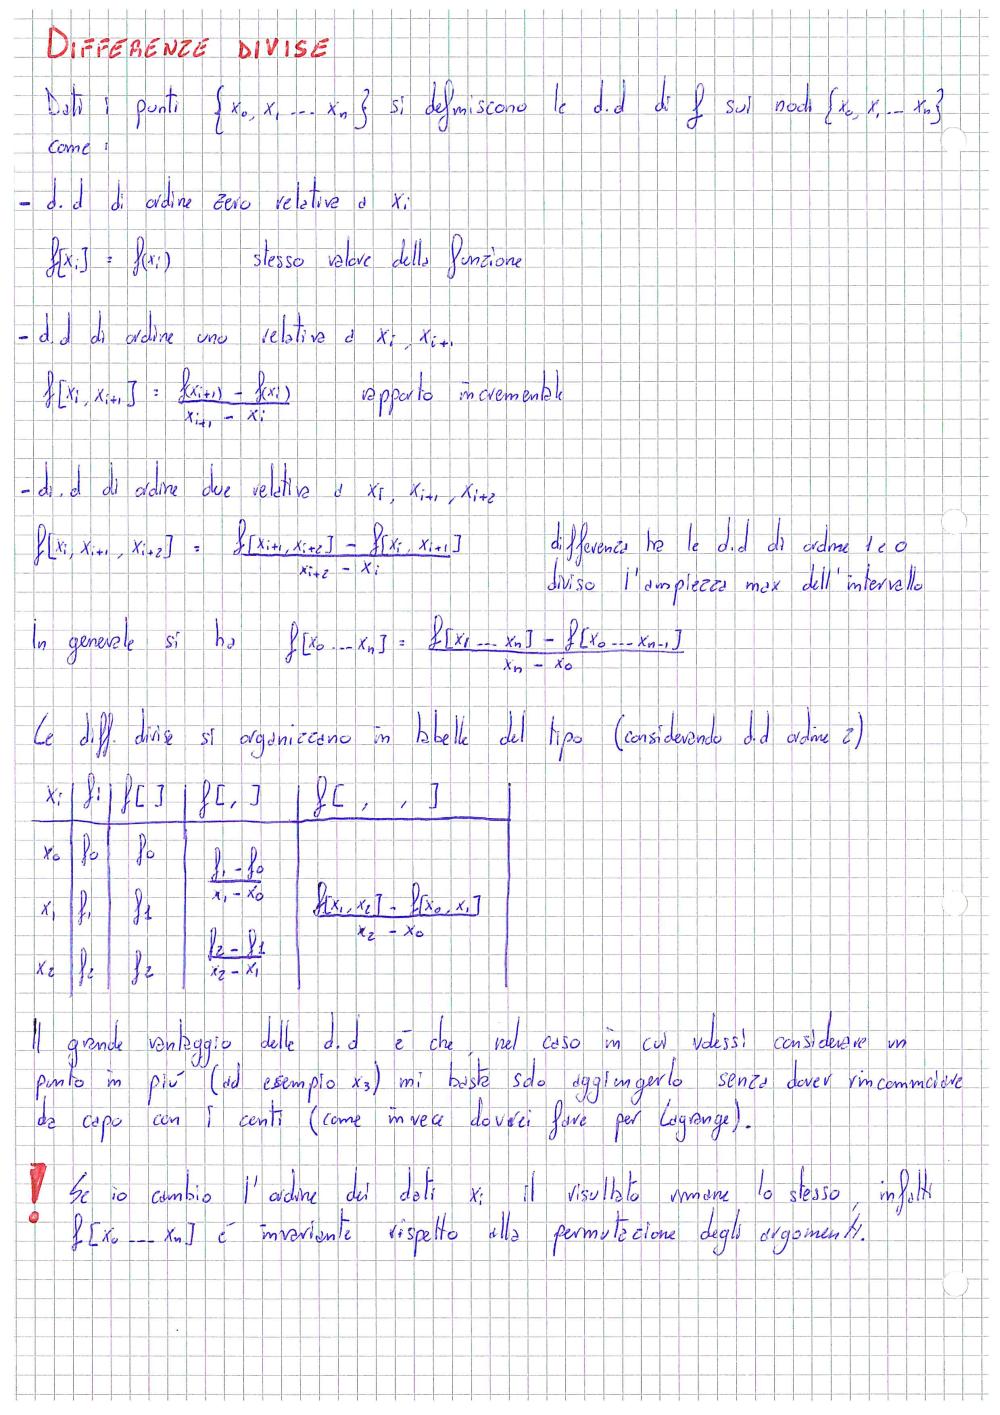 DIFFERENZE DIVISE
Dati i punti {x₀, x₁ --- xₙ} si definiscono le d.d di f sui nodi {x₀, x₁ -- xₙ}
come:
- d.d di ordine zero relative a xᵢ
f[xᵢ] = f(xᵢ) stesso valore della funzione
- d.d di ordine uno relative a xᵢ, xᵢ₊₁
f[xᵢ, xᵢ₊₁] = (f(xᵢ₊₁) - f(xᵢ)) / (xᵢ₊₁ - xᵢ) rapporto incrementale
- di.d di ordine due relative a xᵢ, xᵢ₊₁, xᵢ₊₂
f[xᵢ, xᵢ₊₁, xᵢ₊₂] = (f[xᵢ₊₁, xᵢ₊₂] - f[xᵢ, xᵢ₊₁]) / (xᵢ₊₂ - xᵢ) differenza tra le d.d di ordine 1 e 0
diviso l'ampiezza max dell'intervallo
In generale si ha f[x₀ --- xₙ] = (f[x₁ --- xₙ] - f[x₀ --- xₙ₋₁]) / (xₙ - x₀)
Le diff. divise si organizzano in tabelle del tipo (considerando d.d ordine 2)
xᵢ | fᵢ | f[ ] | f[ , ] | f[ , , ]
x₀ | f₀ | f₀
(f₁ - f₀) / (x₁ - x₀)
x₁ | f₁ | f1 | (f[x₁, x₂] - f[x₀, x₁]) / (x₂ - x₀)
(f₂ - f1) / (x₂ - x₁)
x₂ | f₂ | f₂
Il grande vantaggio delle d.d è che, nel caso in cui volessi considerare un
punto in più (ad esempio x₃) mi basta solo aggiungerlo senza dover rincominciare
da capo con i conti (come invece dovrei fare per Lagrange).
! Se io cambio l'ordine dei dati xᵢ il risultato rimane lo stesso, infatti
f[x₀ --- xₙ] è invariante rispetto alla permutazione degli argomenti.